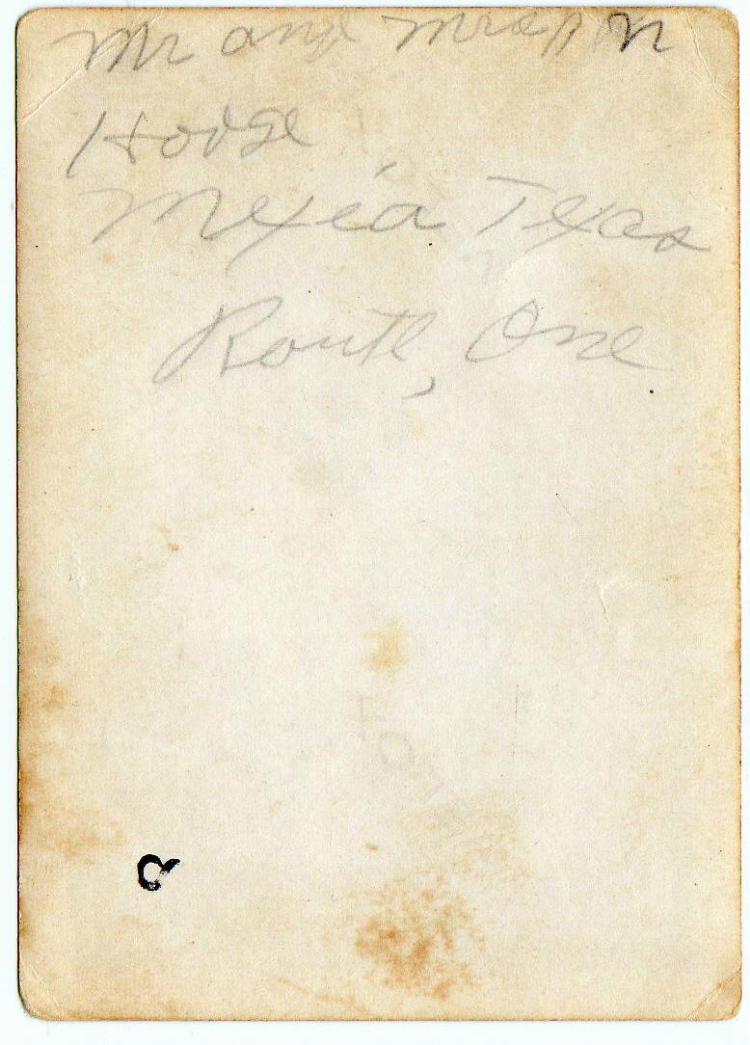 Mr and Mrs
Hodge
Mexia Texas
Route, One